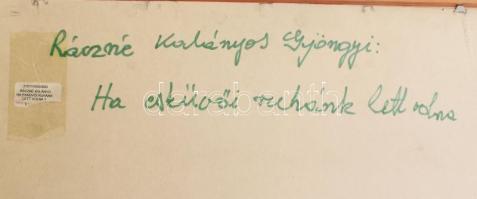 Ráczné Kalányos Gyöngyi:
Ha esküvői ruhánk lett volna